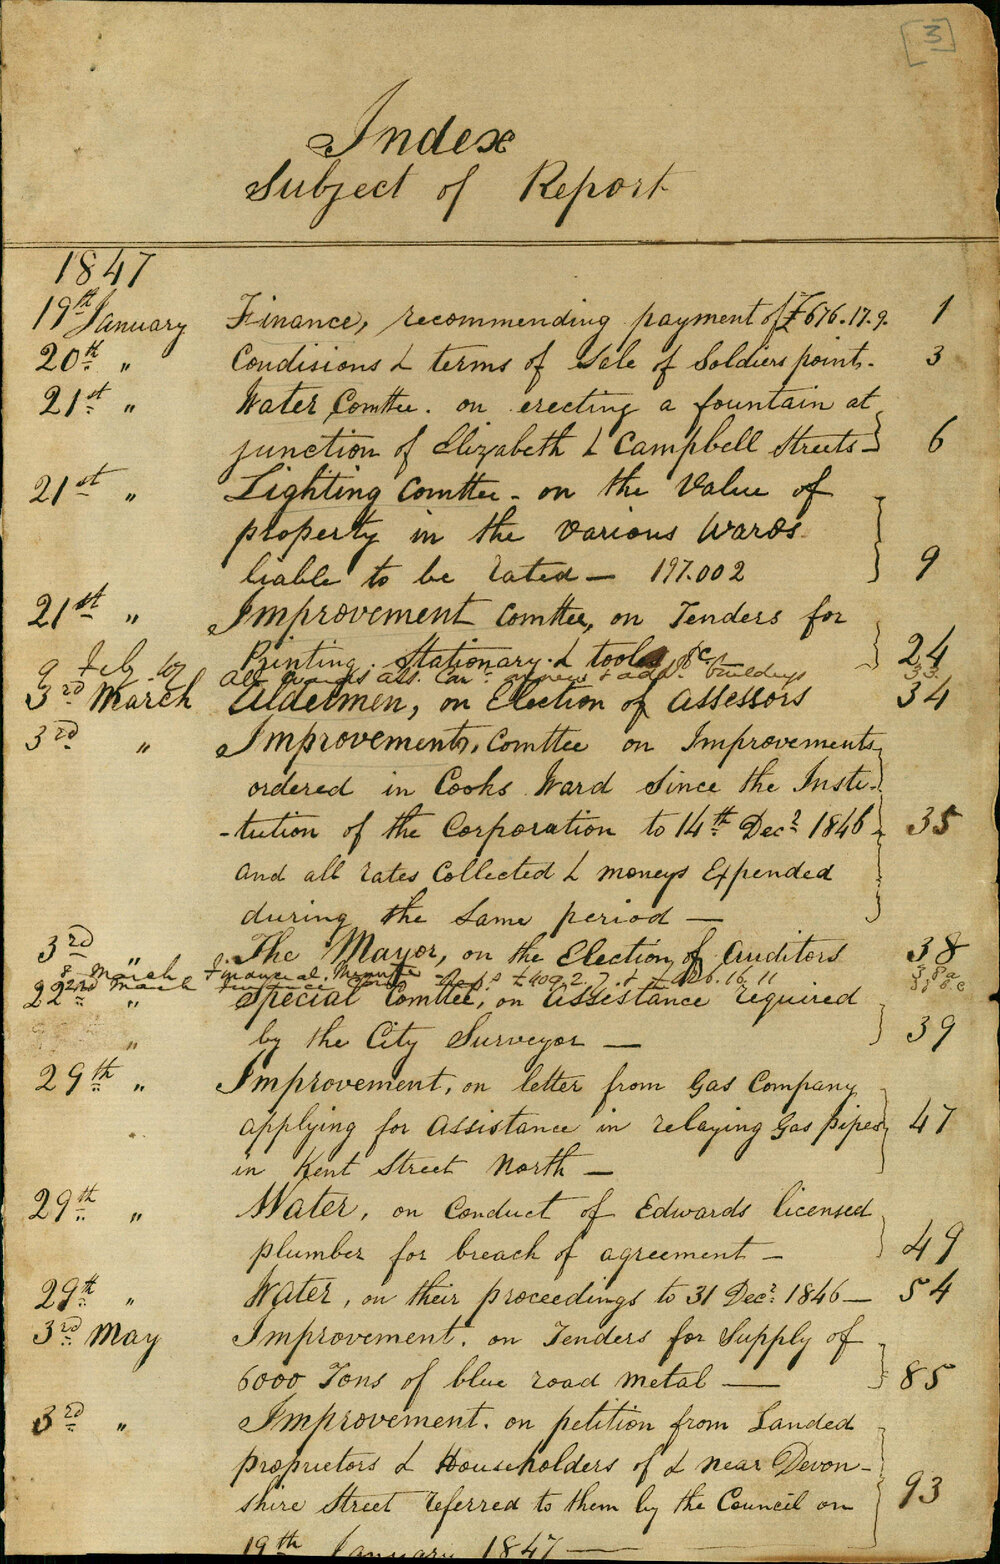 [3]
Index
Subject of Report
1847
19th January Finance, recommending payment of £676.17.9. 1
20th " Condisions & terms of Sale of Soldiers point. 3
21st " Water Comttee. on erecting a fountain at
junction of Elizabeth & Campbell Streets 6
21st " Lighting Comttee - on the Value of
property in the various Wards
liable to be rated — 197.002 9
21st " Improvement Comttee, on Tenders for
Printing. Stationary. & tools &c. 24
9 Feby buildings 33
3rd March Aldermen, on Election of Assessors 34
3rd " Improvements, Comttee on Improvements
ordered in Cooks Ward Since the Insti-
-tution of the Corporation to 14th Decr 1846
and all rates Collected & moneys Expended 35
during the Same period —
3rd " The Mayor, on the Election of Auditors 38
8 March Financial Minute 38a
22nd March £409.2.7 & 16.11
22nd " Special Comttee, on Assistance required
" by the City Surveyor — 39
29th " Improvement, on letter from Gas Company
applying for Assistance in relaying Gas pipes 47
in Kent Street North —
29th " Water, on Conduct of Edwards licensed
plumber for breach of agreement — 49
29th " Water, on their proceedings to 31 Decr. 1846 — 54
3rd May Improvement. on Tenders for Supply of
6000 Tons of blue road metal — 85
3rd " Improvement. on petition from Landed
proprietors & Householders of & near Devon-
shire Street referred to them by the Council on 93
19th January 1847 —